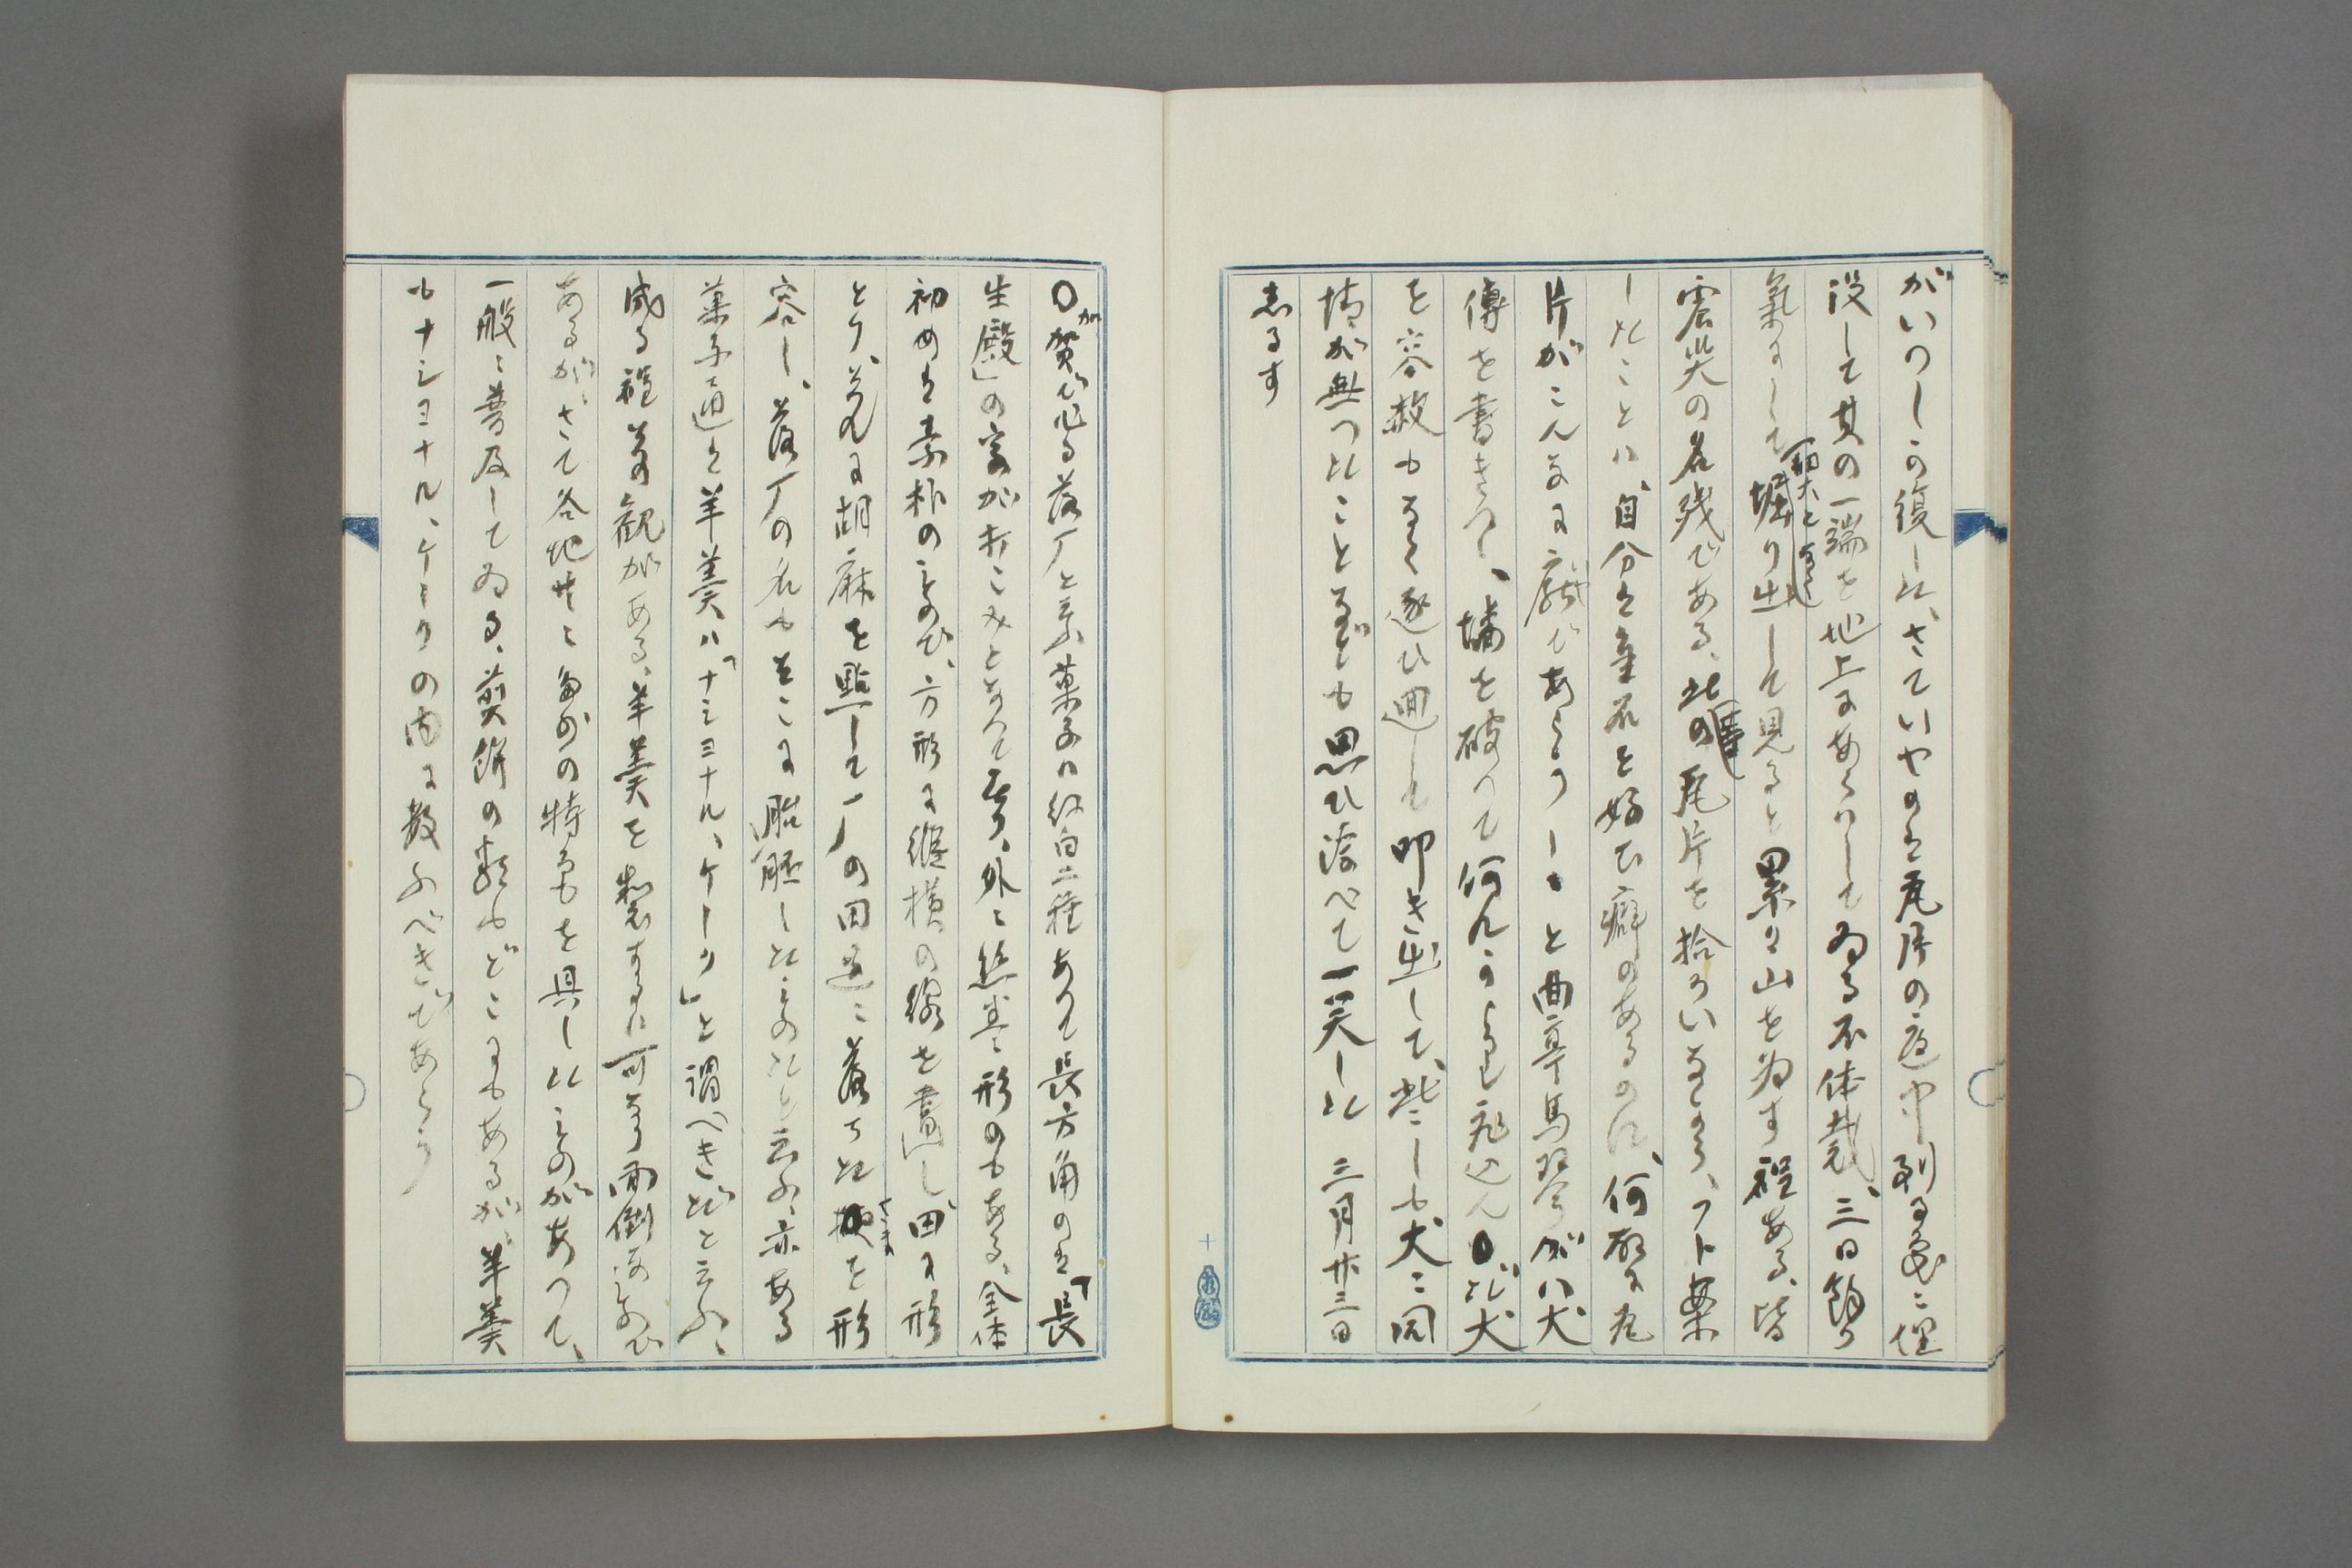 がいつしか復した、さていやのは瓦片の庭中到る處に埋
没して其の一端を地上にあらはしてゐる不体裁、三日飽り
氣にして堀り出して見ると累々山を為す程ある、皆
震災の名残である、此の瓦片を拾ひいながら、フト案
したことハ、自分は奇石を好む癖のあるのに、何故に瓦
片がこんなに厭であらうーーと曲亭馬琴が八犬
傳を書きつゝ、墻を破つて何んかうと飛込んだ犬
を容赦もなく逐ひ廻して叩き出して、些しも犬に同
情が無つたことなども思ひ浮べて一笑した 三月廿三日
志るす
○加賀で作る落丁と云ふ菓子は紅白二種あつて長方角のは「長
生殿」の字が打こみとなつて居り、外に巻形のもある、全体
初めは素朴のもので、方形に縦横の線を畫し、田に形
とり、それに胡麻を點して一丁の田面に落ちたを形
容し、落丁の名もそこに胎胚したものだと云ふ、亦ある
菓子通は羊羹ハ「ナショナル、ケーク」と謂べきだと云ふ、
成る程其の観がある、羊羹を製するには可なり面倒なもので
あるが、さて各地共に多少の特色を具したものがあつて、
一般に普及してゐる、煎餅の類もどこにもあるが、羊羹
もナショナル、ケークの内に数ふべきであらう